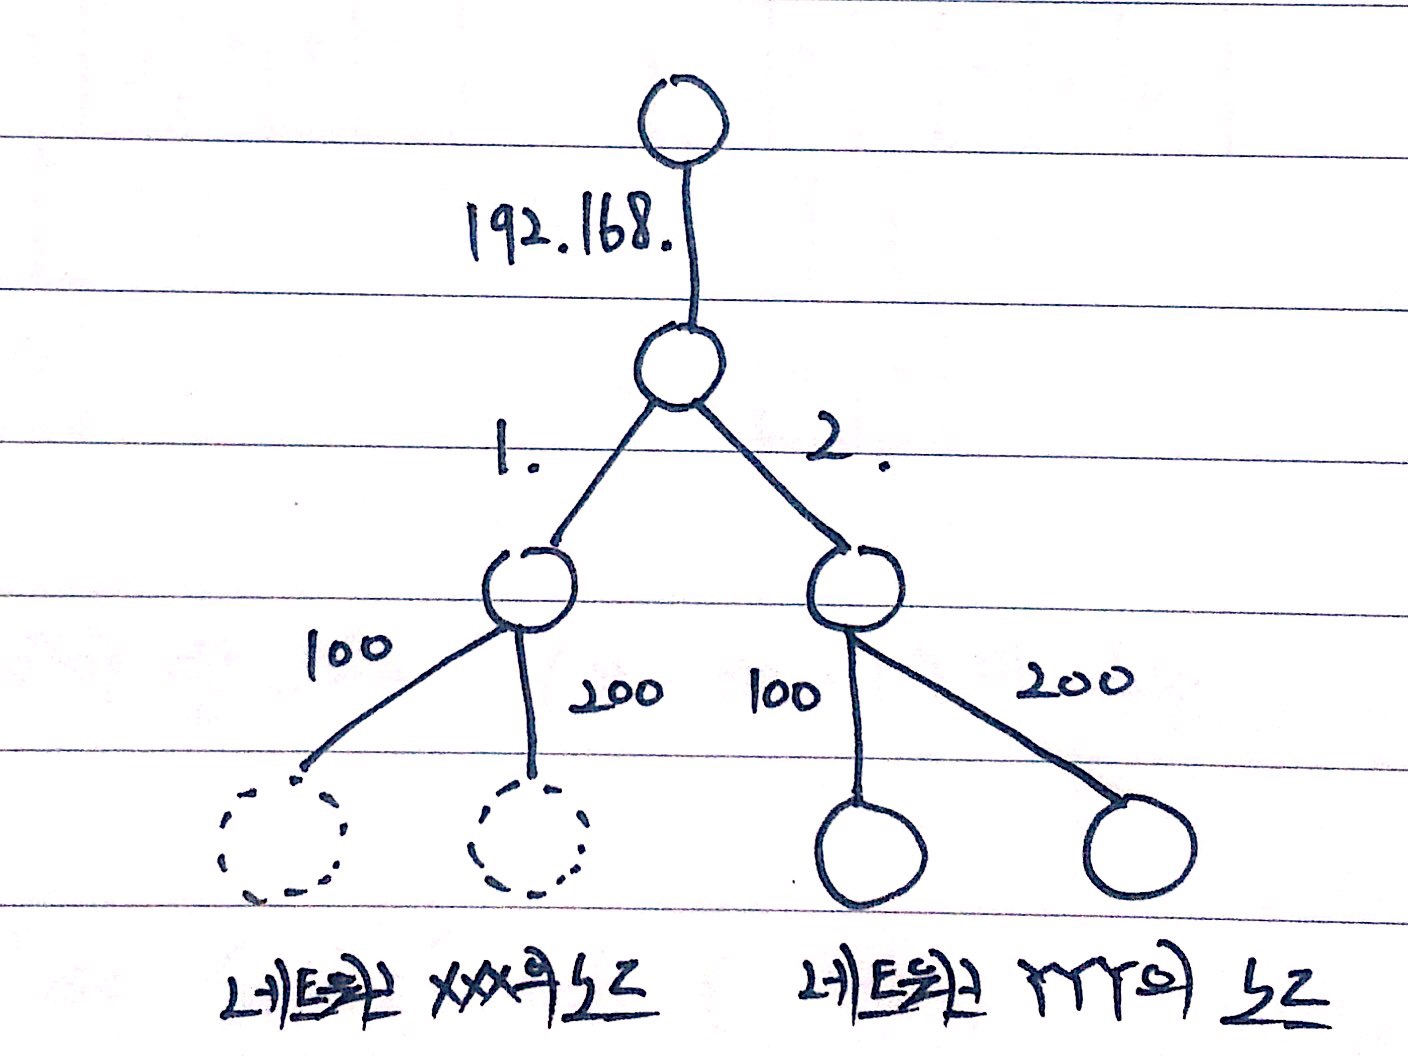 192.168.
1. 2.
100 200 100 200
네트워크 XXX의 노드 네트워크 YYY의 노드